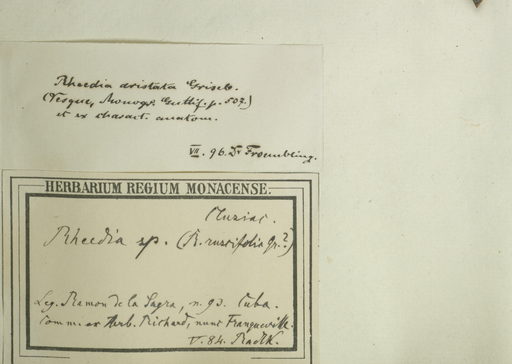 Rheedia aristata Griseb.
(Vesque, Monogr. Guttif. p. 507.)
et ex charact. anatom.
VII. 96. Dr Frombling.
HERBARIUM REGIUM MONACENSE.
Clusiac.
Rheedia sp. (R. ruscifolia Gr.?)
Leg. Ramon de la Sagra, n. 93. Cuba.
Comm. ex Herb. Richard, nunc Franqueville.
V. 84. Radlk.